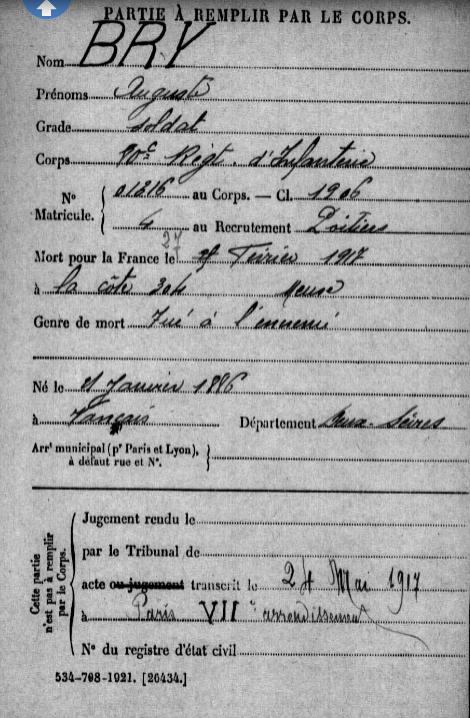 PARTIE À REMPLIR PAR LE CORPS.
Nom BRY
Prénoms Auguste
Grade soldat
Corps 90e Régt. d'Infanterie
Nº Matricule. 01216 au Corps. — Cl. 1906
4 au Recrutement Poitiers
27
Mort pour la France le Février 1917
à la côte 304 Meuse
Genre de mort Tué à l'ennemi
Né le Janvier 1886
à Vançais Département Deux-Sèvres
Arrt municipal (pr Paris et Lyon), à défaut rue et Nº.
Cette partie n'est pas à remplir par le Corps.
Jugement rendu le
par le Tribunal de
acte ou jugement transcrit le 24 Mai 1917
à Paris VIIe arrondissement
Nº du registre d'état civil
534-708-1921. [26434.]